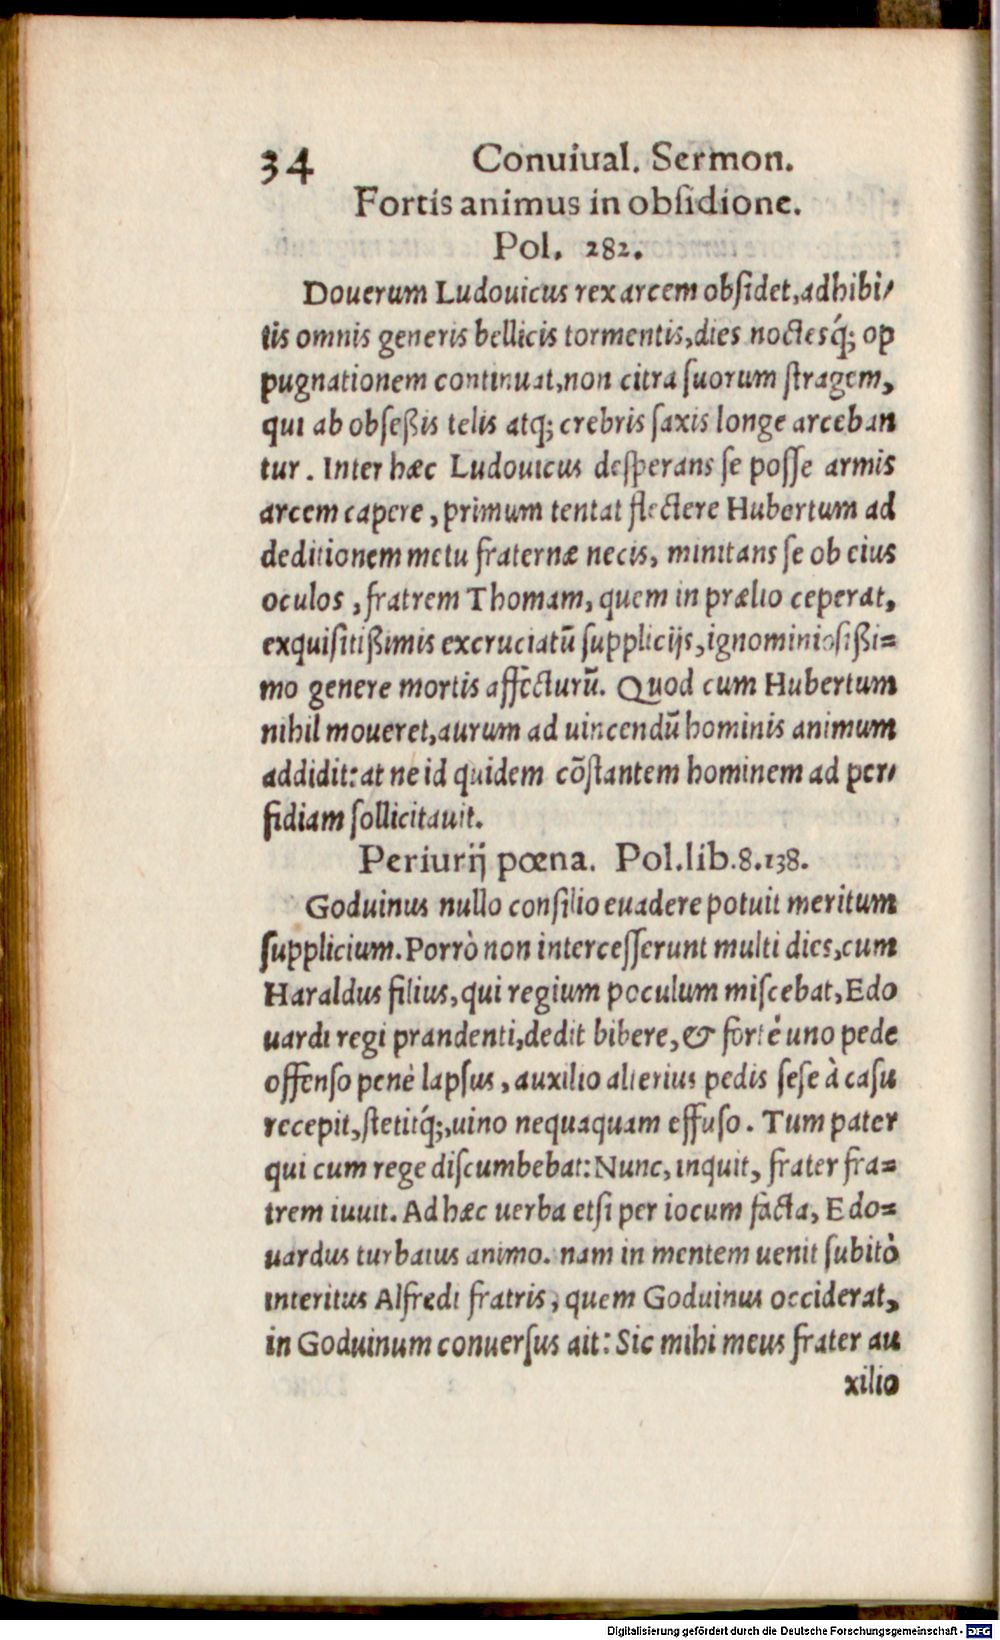 34 Conuiual. Sermon.
Fortis animus in obsidione.
Pol. 282.
Douerum Ludouicus rex arcem obsidet, adhibi/
tis omnis generis bellicis tormentis, dies noctesq́; op
pugnationem continuat, non citra suorum stragem,
qui ab obseßis telis atq; crebris saxis longe arceban
tur. Inter hæc Ludouicus desperans se posse armis
arcem capere, primum tentat flectere Hubertum ad
deditionem metu fraternæ necis, minitans se ob eius
oculos, fratrem Thomam, quem in prælio ceperat,
exquisitißimis excruciatū supplicijs, ignominiosißi=
mo genere mortis affecturū. Quod cum Hubertum
nihil moueret, aurum ad uincendū hominis animum
addidit: at ne id quidem cōstantem hominem ad per/
fidiam sollicitauit.
Periurij pœna. Pol. lib. 8. 138.
Goduinus nullo consilio euadere potuit meritum
supplicium. Porrò non intercesserunt multi dies, cum
Haraldus filius, qui regium poculum miscebat, Edo
uardi regi prandenti, dedit bibere, & fortè uno pede
offenso penè lapsus, auxilio alterius pedis sese à casu
recepit, stetitq́;, uino nequaquam effuso. Tum pater
qui cum rege discumbebat: Nunc, inquit, frater fra=
trem iuuit. Ad hæc uerba etsi per iocum facta, Edo=
uardus turbatus animo. nam in mentem uenit subitò
interitus Alfredi fratris, quem Goduinus occiderat,
in Goduinum conuersus ait: Sic mihi meus frater au
xilio
Digitalisierung gefördert durch die Deutsche Forschungsgemeinschaft - DFG